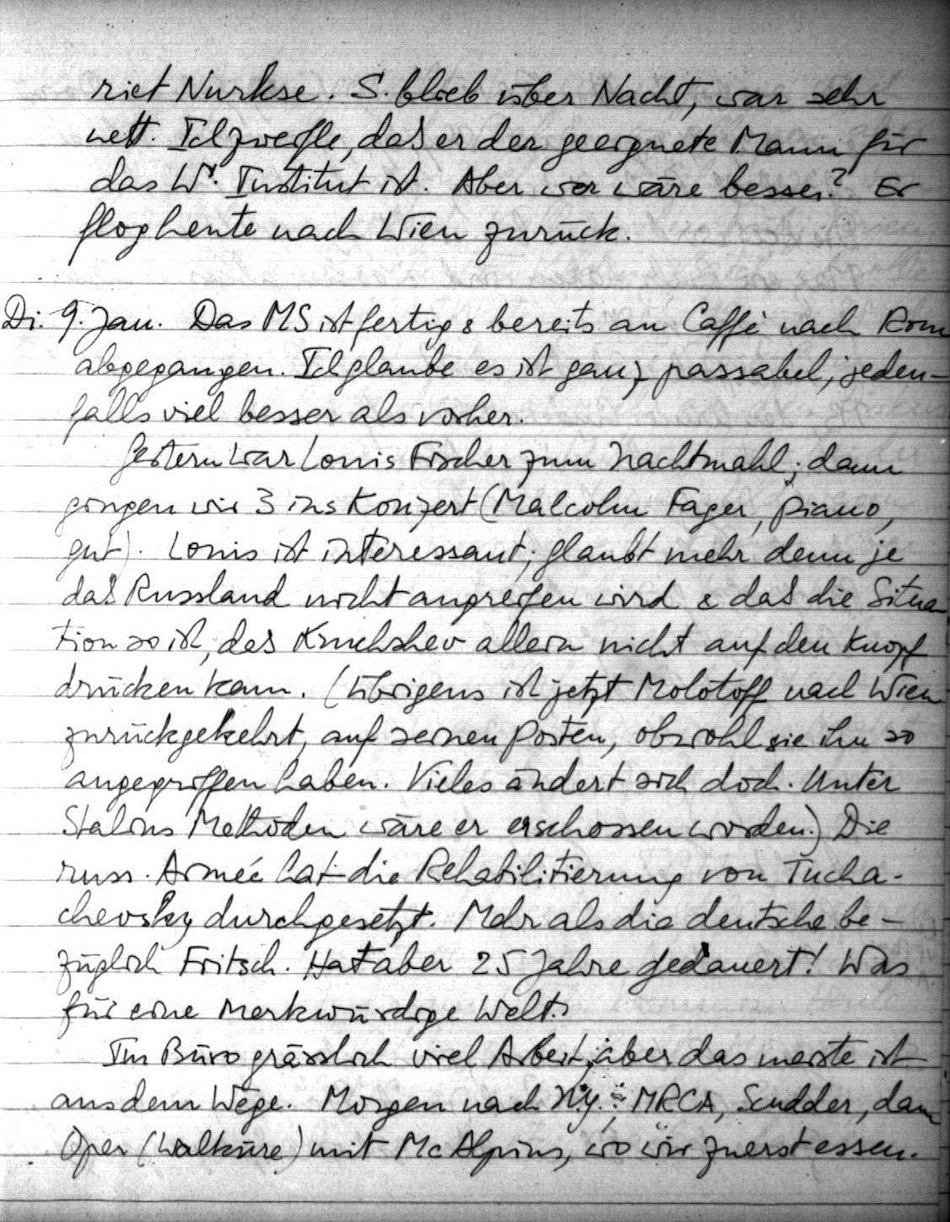 riet Nurkse. S. blieb über Nacht, war sehr
nett. Ich zweifle, daß er der geeignete Mann für
das W. Institut ist. Aber wer wäre besser? Er
flog heute nach Wien zurück.
Di. 9. Jan. Das MS ist fertig & bereits an Caffè nach Rom
abgegangen. Ich glaube es ist ganz passabel, jeden-
falls viel besser als vorher.
Gestern war Louis Fischer zum Nachtmahl; dann
gingen wir 3 ins Konzert (Malcolm Fager, piano,
gut). Louis ist interessant; glaubt mehr denn je
daß Russland nicht angreifen wird & daß die Situa
tion so ist, daß Kruchshev allein nicht auf den Knopf
drücken kann. (Übrigens ist jetzt Molotoff nach Wien
zurückgekehrt, auf seinen Posten, obwohl sie ihn so
angegriffen haben. Vieles ändert sich doch. Unter
Stalins Methoden wäre er erschossen worden.) Die
russ. Armée hat die Rehabilitierung von Tucha-
chevsky durchgesetzt. Mehr als die deutsche be-
züglich Fritsch. Hat aber 25 Jahre gedauert! Was
für eine merkwürdige Welt.
Im Büro grässlich viel Arbeit, aber das meiste ist
aus dem Wege. Morgen nach N.Y.: MRCA, Scudder, dann
Oper (Walküre) mit McAlpins, wo wir zuerst essen.